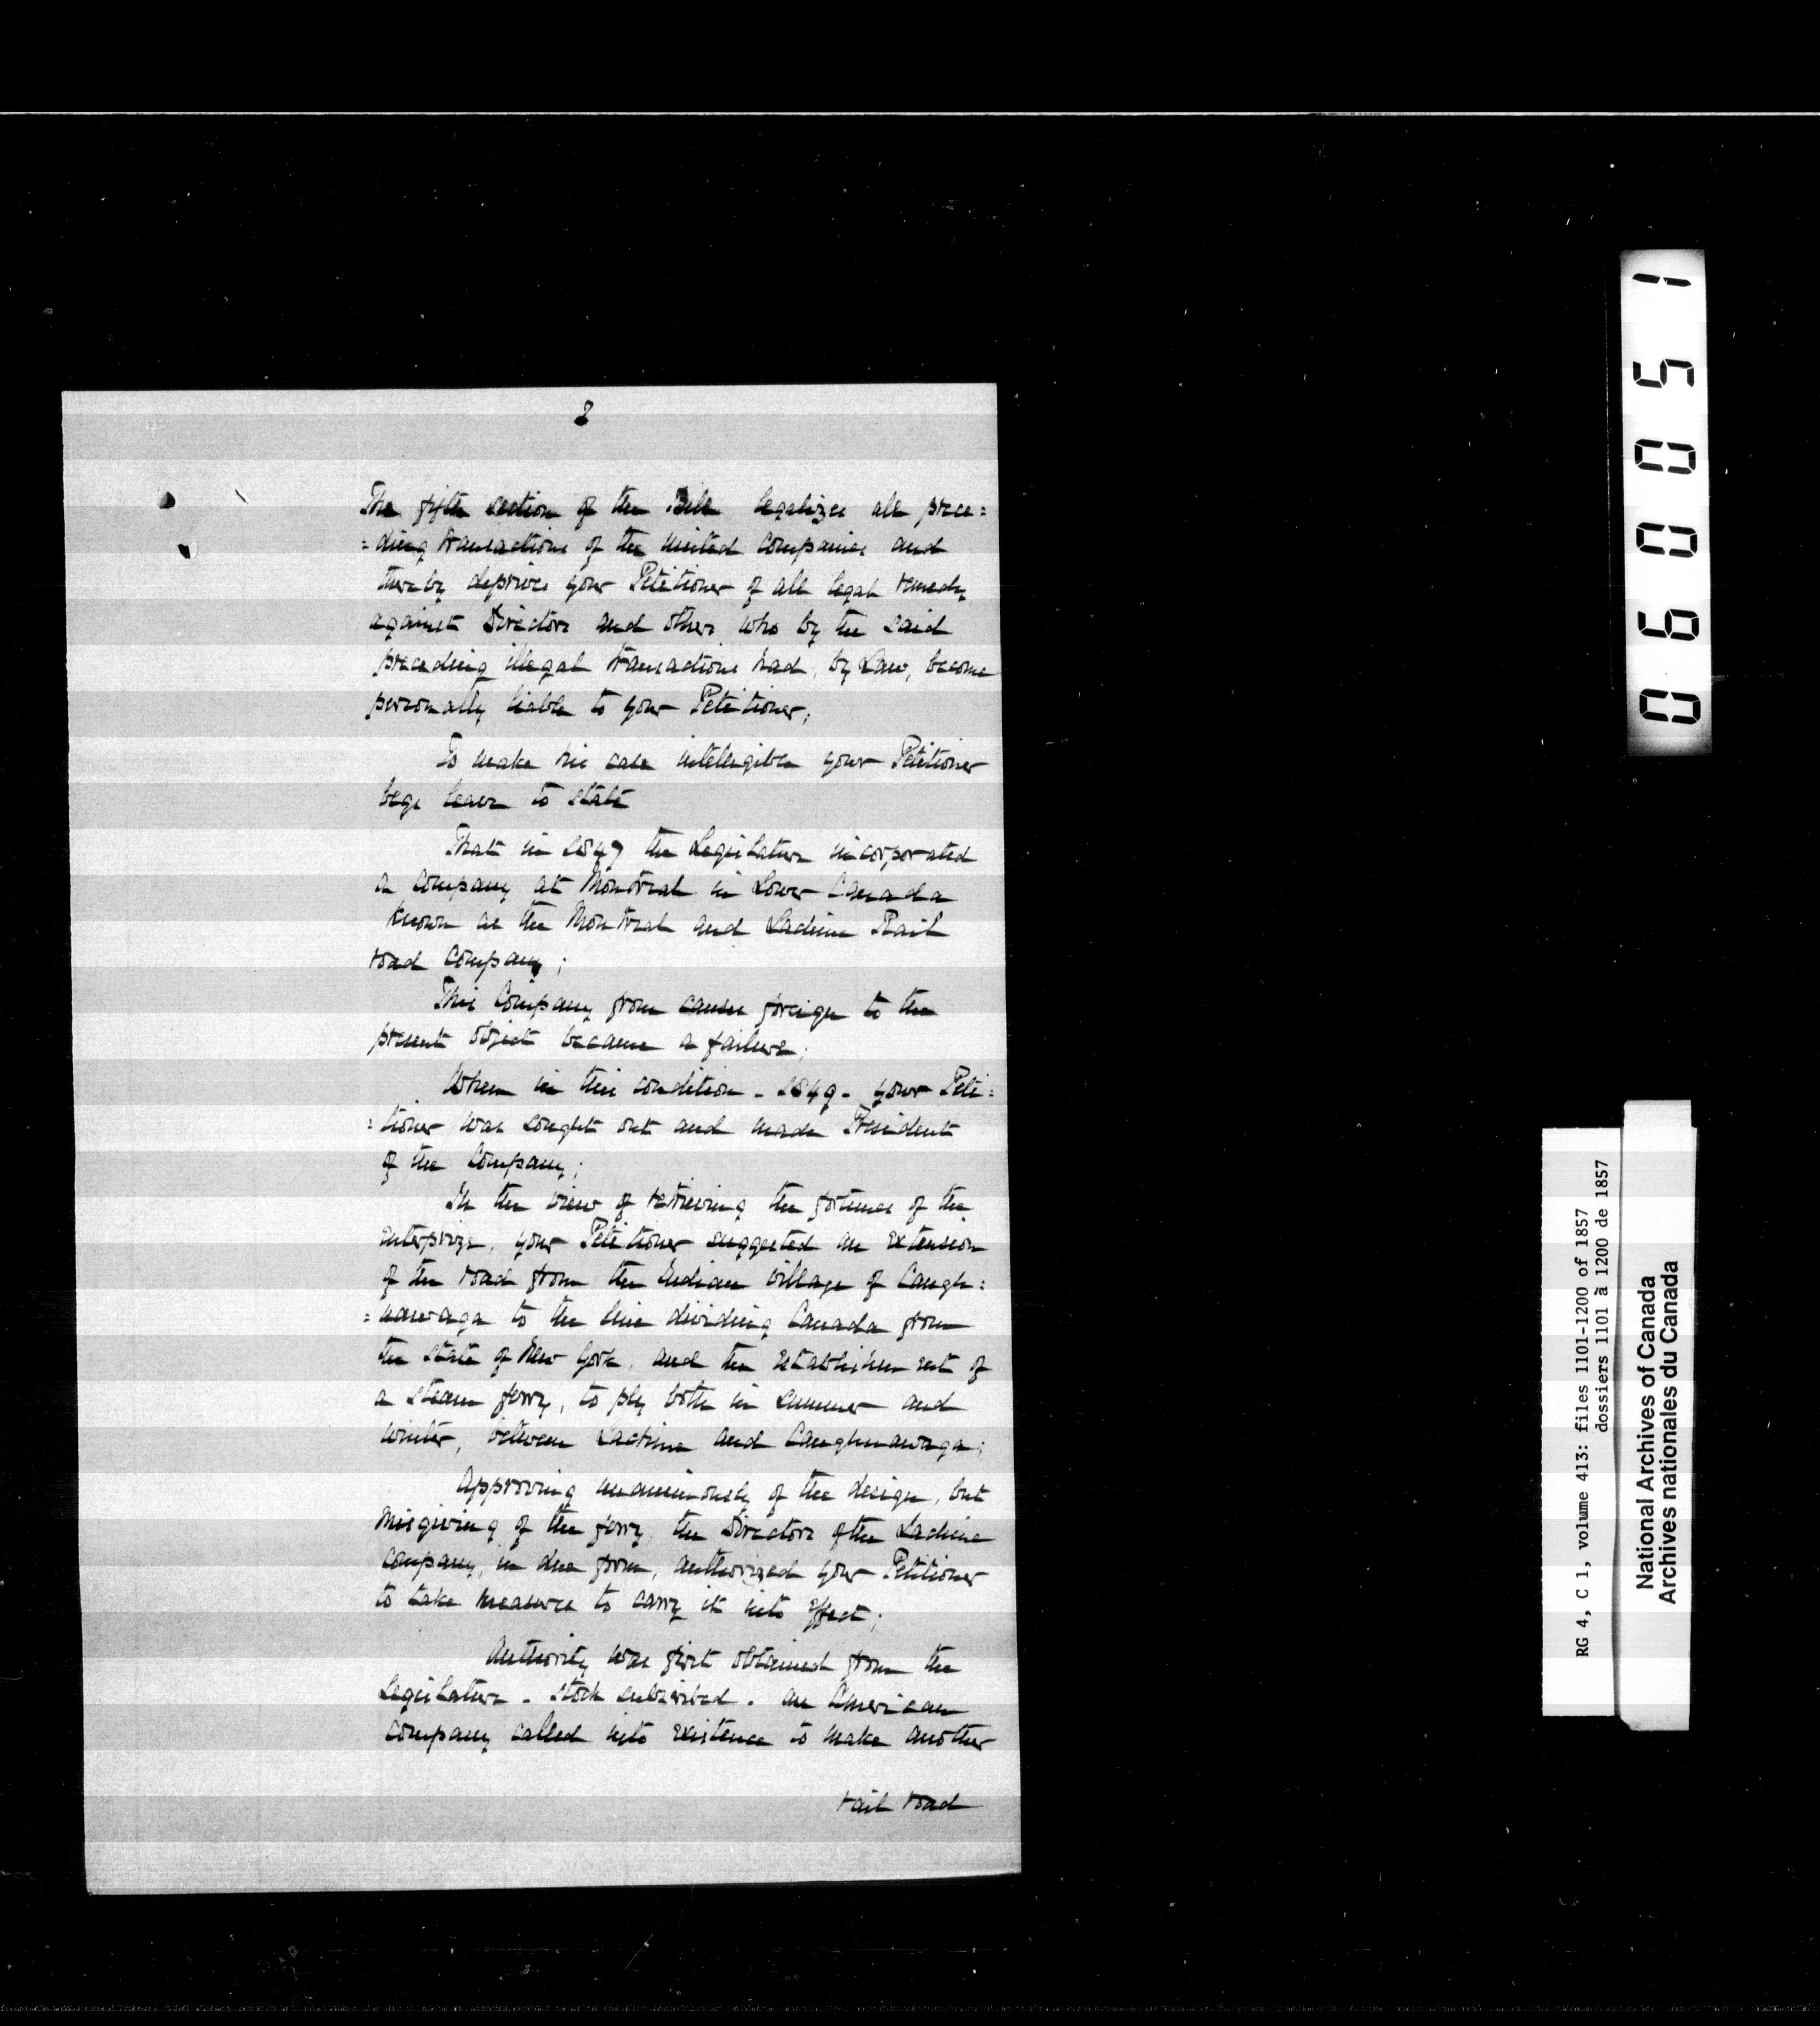 2
The fifth section of the Bill legalizes all prece=
=ding transactions of the united Companies and
thereby deprives your Petitioner of all legal remedy
against Directors and others who by the said
preceding illegal transactions had, by Law, become
personally liable to your Petitioner;
To make his case intelligible your Petitioner
begs leave to state
That in 1847 the Legislature incorporated
a Company at Montreal in Lower Canada
known as the Montreal and Lachine Rail
road Company;
This Company from causes foreign to the
present object became a failure;
When in this condition - 1849 - your Peti=
=tioner was sought out and made President
of the Company;
In the view of retrieving the fortunes of the
enterprize, your Petitioner suggested an extension
of the road from the Indian Village of Caugh=
=nawaga to the line dividing Canada from
the State of New York, and the establishment of
a steam ferry, to ply both in summer and
winter, between Lachine and Caughnawaga;
Approving unanimously of the design, but
misgiving of the ferry, the Directors of the Lachine
Company, in due form, authorized your Petitioner
to take measures to carry it into effect;
Authority was first obtained from the
Legislature - stock subscribed - an American
Company called into existence to make another
rail road
060051
RG 4, C 1, volume 413: files 1101-1200 of 1857
dossiers 1101 à 1200 de 1857
National Archives of Canada
Archives nationales du Canada